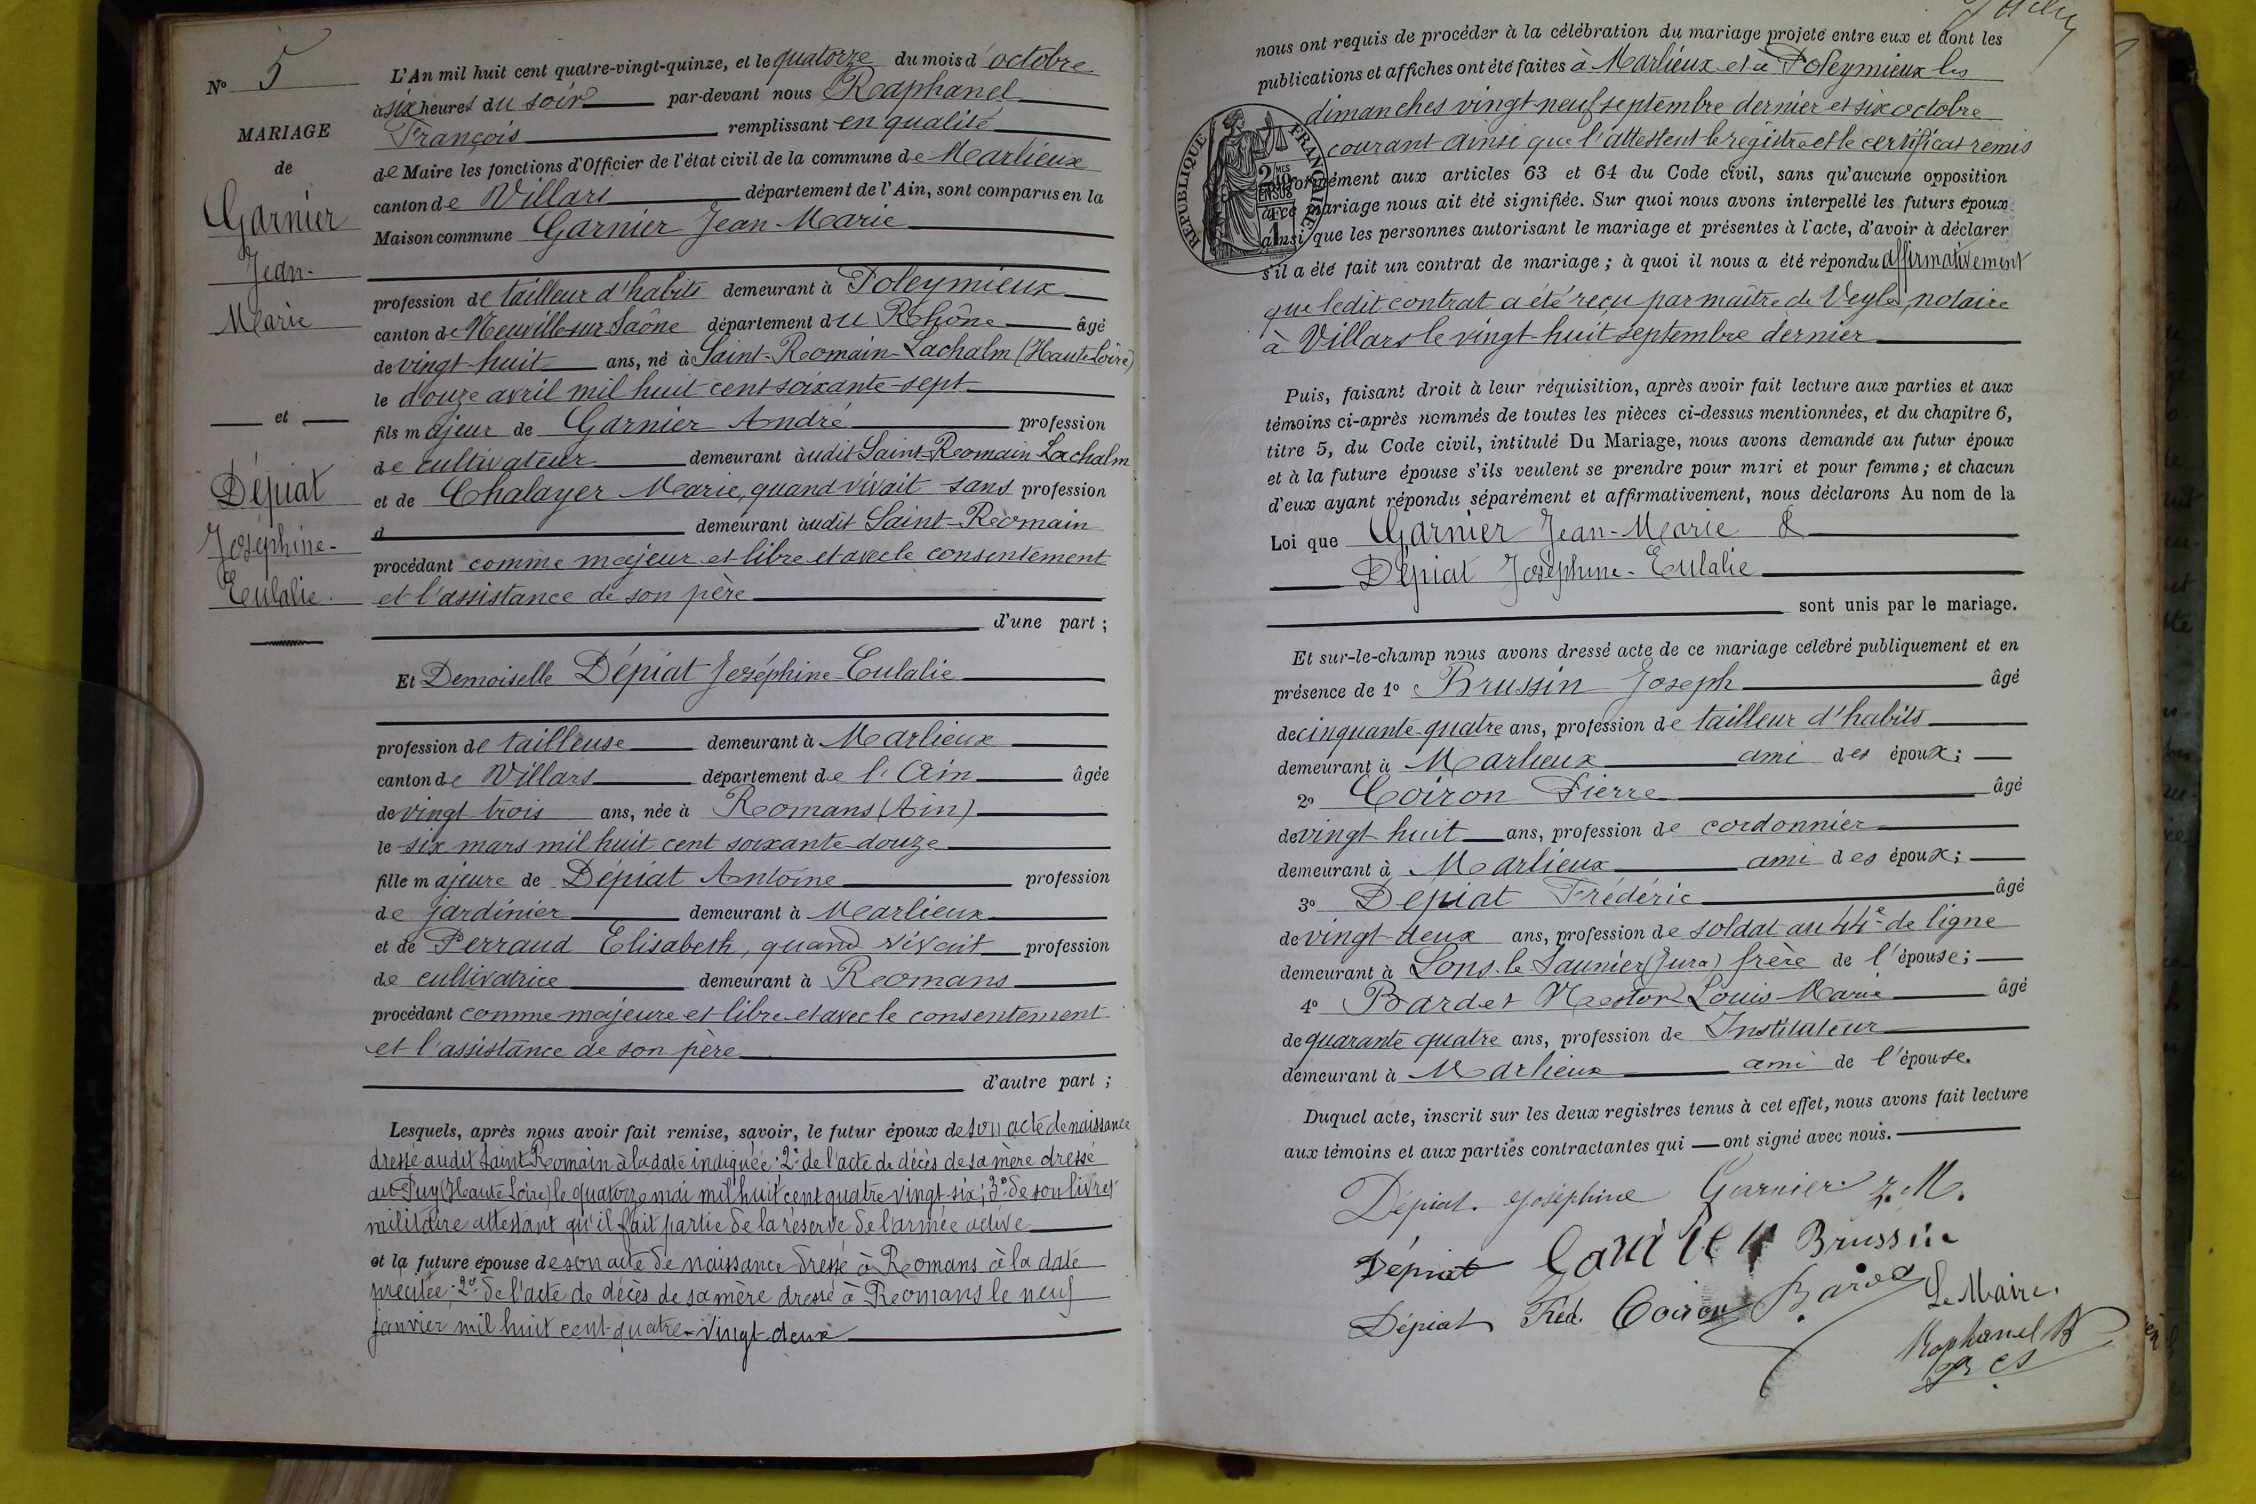 N° 5
MARIAGE
de
Garnier
Jean-
Marie
et
Dépiat
Joséphine-
Eulalie.
L'An mil huit cent quatre-vingt-quinze, et le quatorze du mois d'octobre
à six heures du soir par-devant nous Raphanel
François remplissant en qualité
de Maire les fonctions d'Officier de l'état civil de la commune de Marlieux
canton de Villars département de l'Ain, sont comparus en la
Maison commune Garnier Jean-Marie
profession de tailleur d'habits demeurant à Poleymieux
canton de Neuville sur Saône département du Rhône âgé
de vingt-huit ans, né à Saint-Romain-Lachalm (Haute Loire)
le douze avril mil huit cent soixante-sept
fils majeur de Garnier André profession
de cultivateur demeurant audit Saint-Romain Lachalm
et de Chalayer Marie, quand vivait sans profession
d demeurant audit Saint-Romain
procédant comme majeur et libre et avec le consentement
et l'assistance de son père
d'une part ;
Et Demoiselle Dépiat Joséphine Eulalie
profession de tailleuse demeurant à Marlieux
canton de Villars département de l'Ain âgée
de vingt trois ans, née à Romans (Ain)
le six mars mil huit cent soixante-douze
fille majeure de Dépiat Antoine profession
de jardinier demeurant à Marlieux
et de Perraud Elisabeth, quand vivait profession
de cultivatrice demeurant à Romans
procédant comme majeure et libre et avec le consentement
et l'assistance de son père
d'autre part ;
Lesquels, après nous avoir fait remise, savoir, le futur époux de son acte de naissance
dressé audit Saint Romain à la date indiquée ; 2° de l'acte de décès de sa mère dressé
au Puy (Haute Loire) le quatorze mai mil huit cent quatre vingt-six ; 3° de son livret
militaire attestant qu'il fait partie de la réserve de l'armée active
et la future épouse de son acte de naissance dressé à Romans à la date
précitée ; 2° de l'acte de décès de sa mère dressé à Romans le neuf
janvier mil huit cent quatre-vingt-deux
nous ont requis de procéder à la célébration du mariage projeté entre eux et dont les
publications et affiches ont été faites à Marlieux et à Poleymieux les
dimanches vingt-neuf septembre dernier et six octobre
courant ainsi que l'attestent le registre et le certificat remis
conformément aux articles 63 et 64 du Code civil, sans qu'aucune opposition
à ce mariage nous ait été signifiée. Sur quoi nous avons interpellé les futurs époux
ainsi que les personnes autorisant le mariage et présentes à l'acte, d'avoir à déclarer
s'il a été fait un contrat de mariage ; à quoi il nous a été répondu affirmativement
que ledit contrat a été reçu par maître de Veyle, notaire
à Villars le vingt-huit septembre dernier
RÉPUBLIQUE FRANÇAISE
Puis, faisant droit à leur réquisition, après avoir fait lecture aux parties et aux
témoins ci-après nommés de toutes les pièces ci-dessus mentionnées, et du chapitre 6,
titre 5, du Code civil, intitulé Du Mariage, nous avons demandé au futur époux
et à la future épouse s'ils veulent se prendre pour mari et pour femme ; et chacun
d'eux ayant répondu séparément et affirmativement, nous déclarons Au nom de la
Loi que Garnier Jean-Marie &
Dépiat Joséphine-Eulalie
sont unis par le mariage.
Et sur-le-champ nous avons dressé acte de ce mariage célébré publiquement et en
présence de 1° Brussin Joseph âgé
de cinquante-quatre ans, profession de tailleur d'habits
demeurant à Marlieux ami des époux ;
2° Coiron Pierre âgé
de vingt huit ans, profession de cordonnier
demeurant à Marlieux ami des époux ;
3° Dépiat Frédéric âgé
de vingt-deux ans, profession de soldat au 44e de ligne
demeurant à Lons-le Saunier (Jura) frère de l'épouse ;
4° Bardet Nestor Louis Marie âgé
de quarante quatre ans, profession de Instituteur
demeurant à Marlieux ami de l'épouse.
Duquel acte, inscrit sur les deux registres tenus à cet effet, nous avons fait lecture
aux témoins et aux parties contractantes qui ont signé avec nous.
Dépiat Joséphine Garnier J. M.
Dépiat Garnier Brussin
Dépiat Fréd. Coiron Bardet Le Maire.
Raphanel